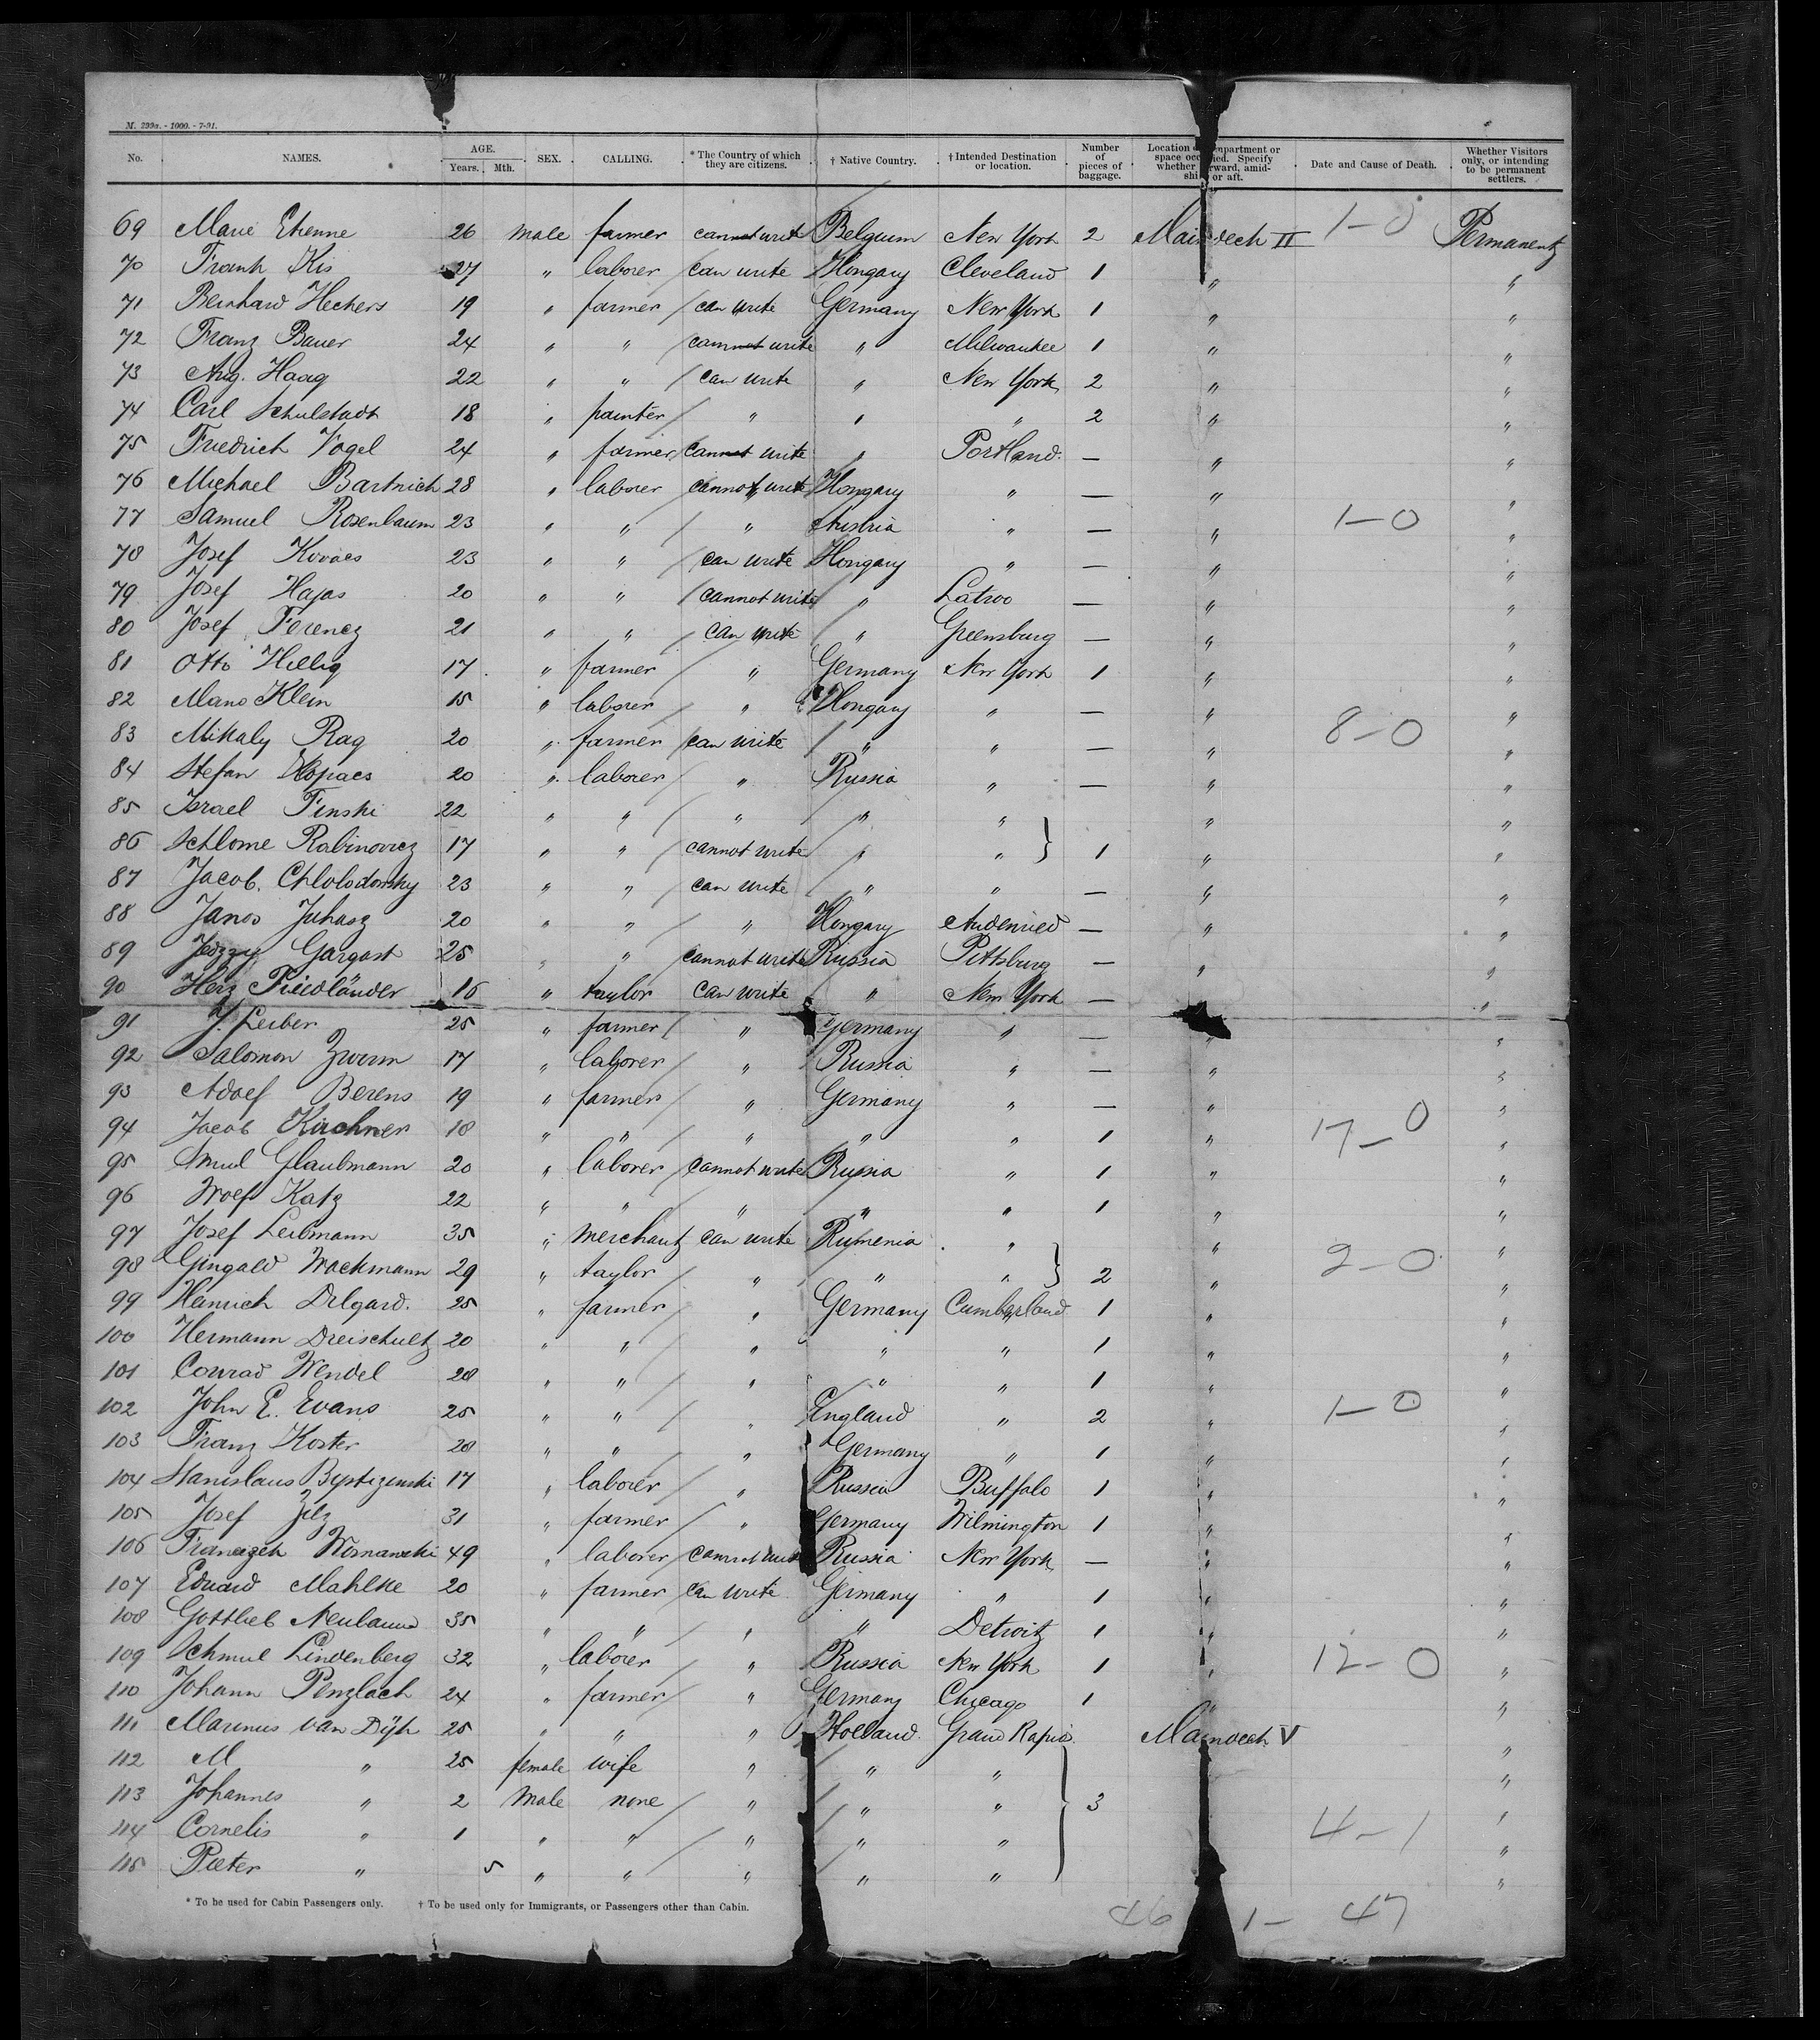 M. 299a. - 1000. - 7-91.
No. NAMES. AGE. Years. Mth. SEX. CALLING. * The Country of which they are citizens. † Native Country. † Intended Destination or location. Number of pieces of baggage. Location of compartment or space occupied. Specify whether forward, amidships or aft. Date and Cause of Death. Whether Visitors only, or intending to be permanent settlers.
69 Marie Etienne 26 male farmer cannot write Belgium New York 2 Maindeck II 1-0 Permanent
70 Frank Kis 27 " laborer can write Hongary Cleveland 1 " "
71 Bernhard Heckers 19 " farmer can write Germany New York 1 " "
72 Franz Bauer 24 " " cannot write " Milwaukee 1 " "
73 Aug. Haag 22 " " can write " New York 2 " "
74 Carl Schulstadt 18 " painter " " " 2 " "
75 Friedrich Vogel 24 " farmer cannot write " Portland. — " "
76 Michael Bartnich 28 " laborer cannot write Hongary " — " "
77 Samuel Rosenbaum 23 " " " Austria " — " 1-0 "
78 Josef Kovacs 23 " " can write Hongary " — " "
79 Josef Hajas 20 " " cannot write " Latroo — " "
80 Josef Ferencz 21 " " can write " Greensburg — " "
81 Otto Hellig 17 " farmer " Germany New York 1 " "
82 Mano Klein 15 " laborer " Hongary " — " "
83 Mihaly Rag 20 " farmer can write " " — " 8-0 "
84 Stefan 20 " laborer " Russia " — " "
85 Israel Finski 22 " " " " " " "
86 Schlome Rabinovicz 17 " " cannot write " " 1 " "
87 Jacob. Chlolodowsky 23 " " can write " " — " "
88 Janos Juhasz 20 " " " Hongary Audenried — " "
89 Gargast 25 " " cannot write Russia Pittsburg — " "
90 Herz Friedländer 16 " taylor can write " New York — " "
91 J. Leiber 25 " farmer " Germany " — " "
92 Salomon Zwirn 17 " laborer " Russia " — " "
93 Adolf Berens 19 " farmer " Germany " — " "
94 Jacob Kirchner 18 " " " " " 1 " 17-0 "
95 Smul Glaubmann 20 " laborer cannot write Russia " 1 " "
96 Wolf Katz 22 " " " " " 1 " "
97 Josef Leibmann 35 " merchant can write Rumenia " " "
98 Gingald Wackmann 29 " taylor " " " 2 " 2-0 "
99 Heinrich Dilgard. 25 " farmer " Germany Cumberland 1 " "
100 Hermann Dreischultz 20 " " " " " 1 " "
101 Conrad Wendel 28 " " " " " 1 " "
102 John E. Evans 25 " " " England " 2 " 1-0 "
103 Franz Koster 28 " " " Germany " 1 " "
104 Stanislaus Bystizenski 17 " laborer " Russia Buffalo 1 " "
105 Josef Zilz 31 " farmer " Germany Wilmington 1 " "
106 Franczek Womanski 49 " laborer cannot write Russia New York — " "
107 Eduard Mahlke 20 " farmer can write Germany " 1 " "
108 Gottlieb Neubauer 35 " " " " Detroit 1 " "
109 Schmul Lindenberg 32 " laborer " Russia New York 1 " 12-0 "
110 Johann Penzlach 24 " farmer " Germany Chicago 1 " "
111 Marinus van Dijk 25 " " " Holland. Grand Rapids. Maindeck V "
112 M " 25 female wife " " " "
113 Johannes " 2 male none " " " 3 "
114 Cornelis " 1 " " " " " 4-1 "
115 Pieter " 5 " " " " " "
* To be used for Cabin Passengers only. † To be used only for Immigrants, or Passengers other than Cabin.
46 1- 47